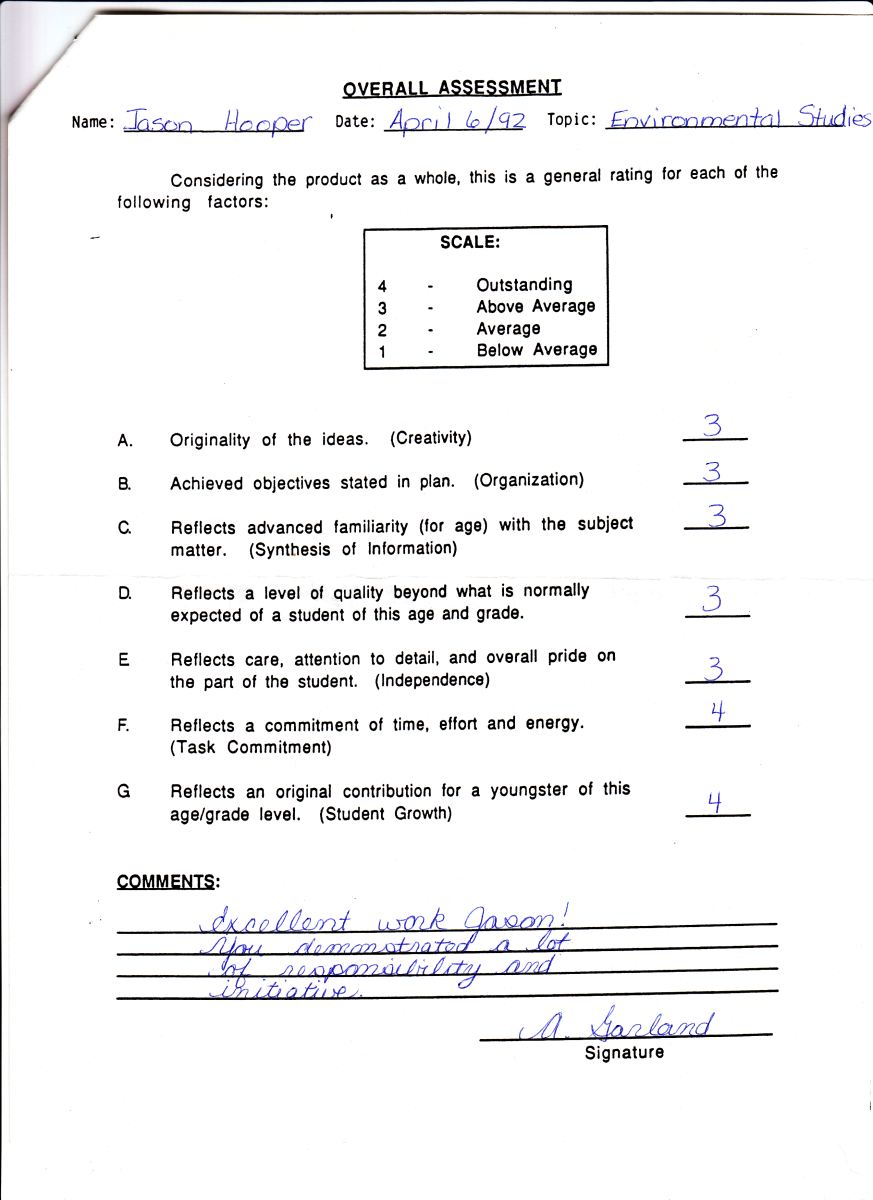 OVERALL ASSESSMENT
Name: Jason Hooper Date: April 6/92 Topic: Environmental Studies
Considering the product as a whole, this is a general rating for each of the
following factors:
SCALE:
4 - Outstanding
3 - Above Average
2 - Average
1 - Below Average
A. Originality of the ideas. (Creativity) 3
B. Achieved objectives stated in plan. (Organization) 3
C. Reflects advanced familiarity (for age) with the subject 3
matter. (Synthesis of Information)
D. Reflects a level of quality beyond what is normally 3
expected of a student of this age and grade.
E Reflects care, attention to detail, and overall pride on 3
the part of the student. (Independence)
F. Reflects a commitment of time, effort and energy. 4
(Task Commitment)
G Reflects an original contribution for a youngster of this 4
age/grade level. (Student Growth)
COMMENTS:
Excellent work Jason!
You demonstrated a lot
of responsibility and
initiative.
A. Garland
Signature